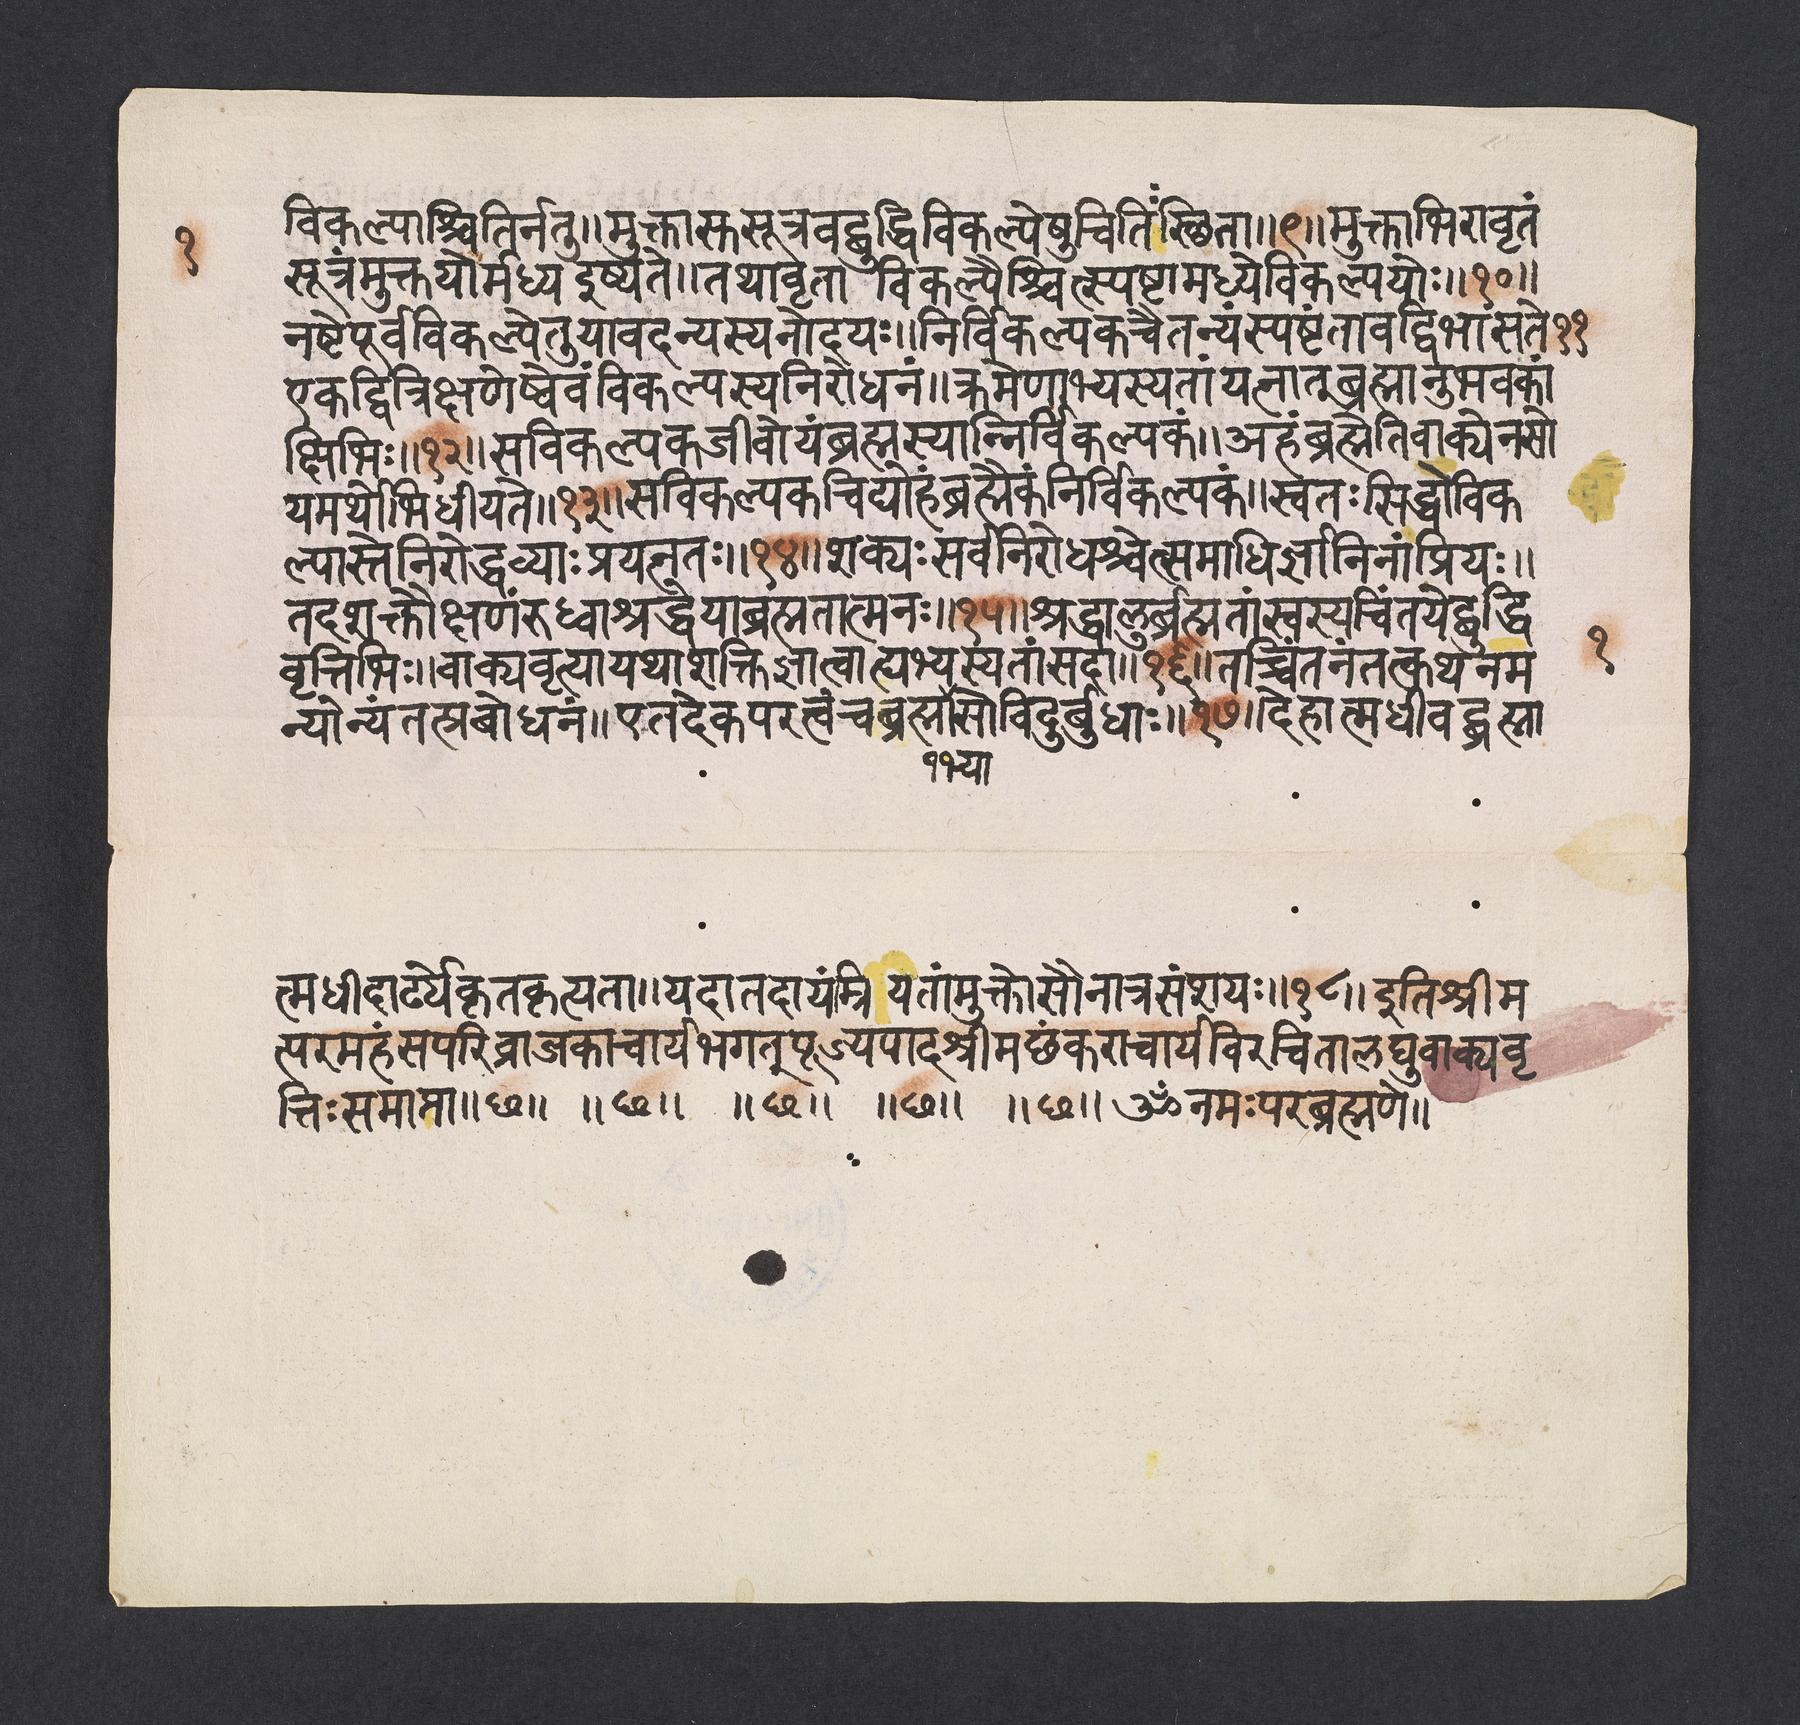 विकल्पाश्चितिर्नतु॥मुक्तास्कसूत्रवद्बुद्धिविकल्पेषुचितिंस्छिता॥९॥मुक्ताभिरावृतं
१
सूत्रंमुक्तयोर्मध्यदुष्यते॥तथावृता विकल्पैश्चित्स्पष्टामध्येविकल्पयोः॥१०॥
नष्टेपूर्वविकल्पेतुयावदन्यस्यनोदयः॥निर्विकल्पकचैतन्यंस्पष्टंतावद्विभासते११
एकद्वित्रिक्षणेष्वेवंविकल्पस्यनिरोधनं॥क्रमेणाभ्यस्यतांयत्नात्ब्रह्मानुभवकां
क्षिभिः॥१२॥सविकल्पकजीवोयंब्रह्मस्यान्निर्विकल्पकं॥अहंब्रह्मेतिवाक्येनसो
यमर्थोभिधीयते॥१३॥सविकल्पकचिद्योहंब्रह्मैकंनिर्विकल्पकं॥स्वतःसिद्धोविक
ल्पास्तेनिरोद्धव्याःप्रयत्नतः॥१४॥शक्यःसर्वनिरोधश्चेत्समाधिर्ज्ञानिनांप्रियः॥
तदशक्तौक्षणंरुध्वाश्रद्धेयाब्रह्मतात्मनः॥१५॥श्रद्धालुर्ब्रह्मतांस्वस्यचिंतयेद्बुद्धि
वृत्तिभिः॥वाक्यवृत्यायथाशक्तिज्ञात्वात्यभ्यस्यतांसदा॥१६॥तच्चिंतनंतत्कथनम
१
न्योन्यंतत्प्रबोधनं॥एतदेकपरत्वंचब्रह्मासौविदुर्बुधाः॥१७॥देहात्मधीवद्ब्रह्मा
११भ्या
त्मधीदार्ढ्येकृतकृत्यता॥यदातदायंम्रि यतांमुक्तोसौनात्रसंशयः॥१८॥इतिश्रीम
त्परमहंसपरिव्राजकाचार्यभगत्पूज्यपादश्रीमछंकराचार्यविरचितालघुवाक्यवृ
त्तिःसमाप्ता॥छ॥ ॥छ॥ ॥छ॥ ॥छ॥ ॥छ॥ॐनमःपरब्रह्मणे॥